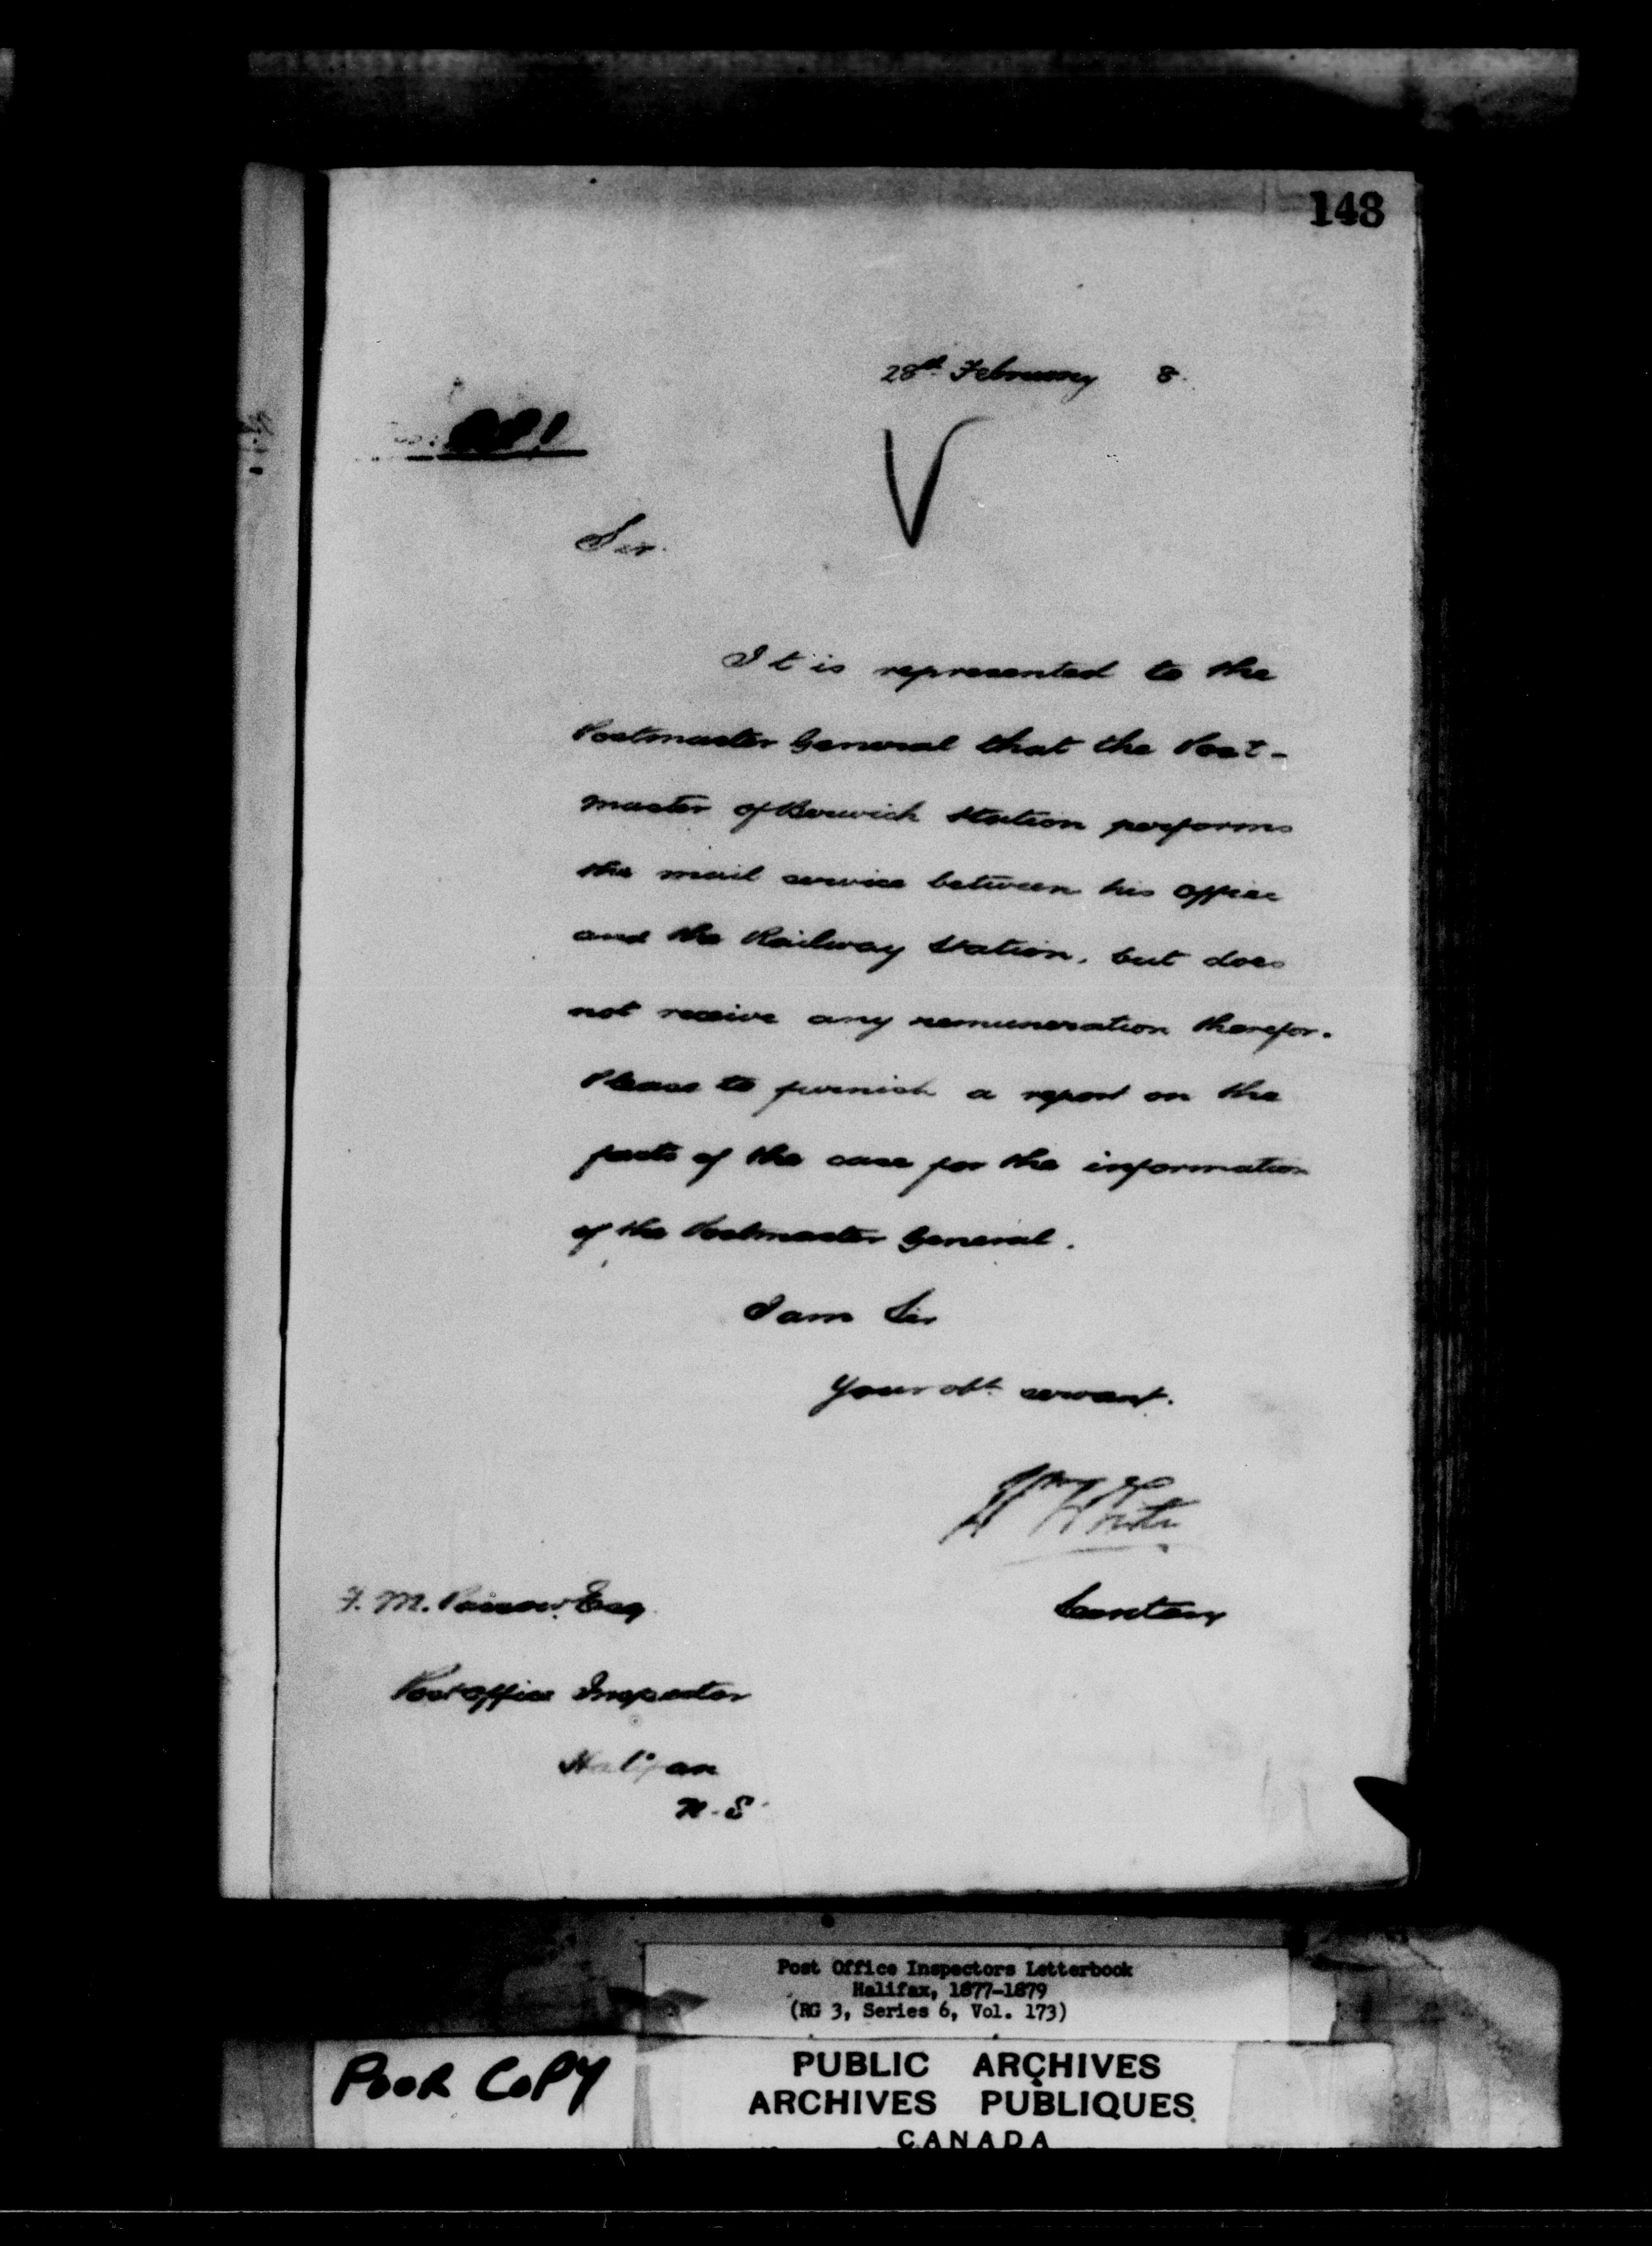 148
28th February 8.
Sir.
It is represented to the
Postmaster General that the Post-
master of Berwick Station performs
the mail service between his office
and the Railway Station, but does
not receive any remuneration therefor.
Please to furnish a report on the
facts of the case for the information
of the Postmaster General.
I am Sir
Your obt. servant.
White
Secretary
F. M. Passow Esq
Post office Inspector
Halifax
N.S
Post Office Inspectors Letterbook
Halifax, 1877-1879
(RG 3, Series 6, Vol. 173)
POOR COPY
PUBLIC ARCHIVES
ARCHIVES PUBLIQUES
CANADA